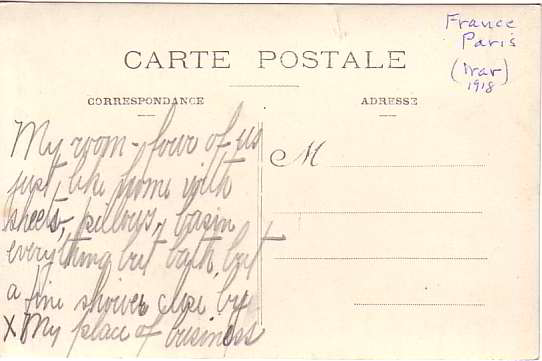 France
Paris
(War)
1918
CARTE POSTALE
CORRESPONDANCE
ADRESSE
M
My room - four of us
just like home with
sheets, pillows, basin
everything but bath, but
a fine shower close by
X My place of business